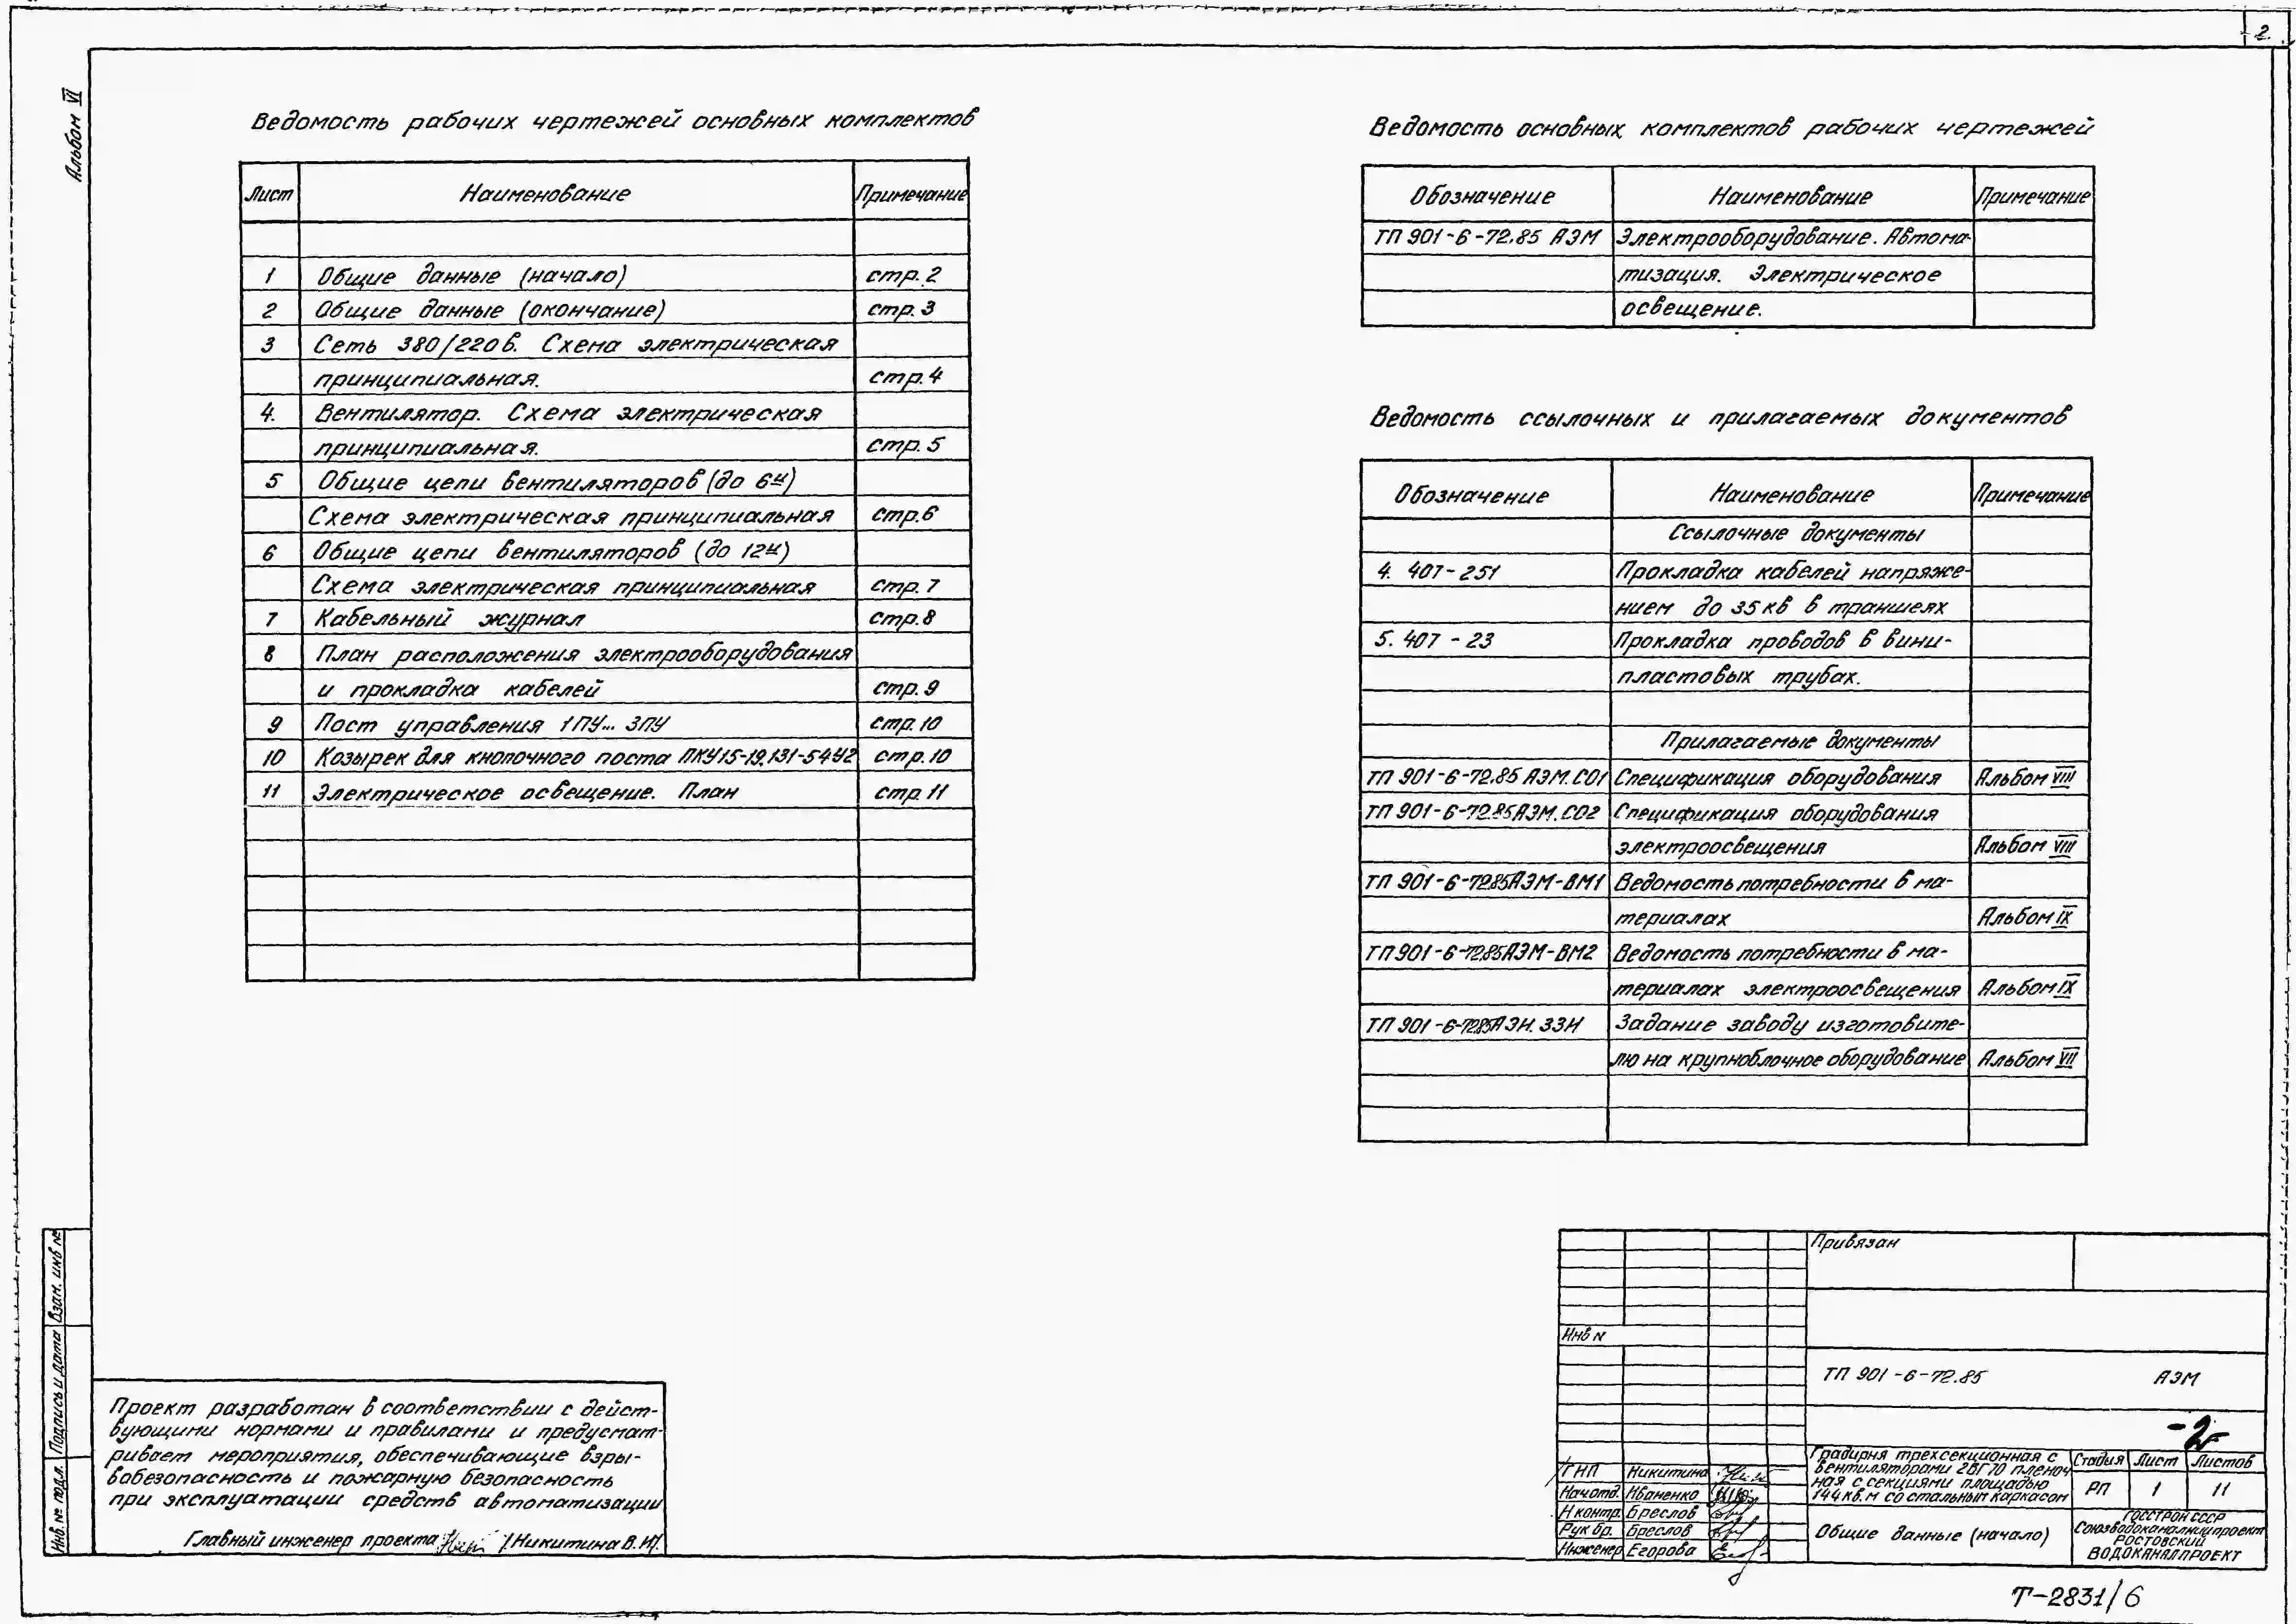 2
Альбом VI
Ведомость рабочих чертежей основных комплектов
Лист Наименование Примечание
1 Общие данные (начало) стр. 2
2 Общие данные (окончание) стр. 3
3 Сеть 380/220в. Схема электрическая
принципиальная. стр. 4
4. Вентилятор. Схема электрическая
принципиальная. стр. 5
5 Общие цепи вентиляторов (до 6и)
Схема электрическая принципиальная стр. 6
6 Общие цепи вентиляторов (до 12и)
Схема электрическая принципиальная стр. 7
7 Кабельный журнал стр. 8
8 План расположения электрооборудования
и прокладка кабелей стр. 9
9 Пост управления 1ПУ... 3ПУ стр. 10
10 Козырек для кнопочного поста ПКУ15-19.131-54У2 стр. 10
11 Электрическое освещение. План стр. 11
Ведомость основных комплектов рабочих чертежей
Обозначение Наименование Примечание
ТП 901-6-72.85 АЭМ Электрооборудование. Автома-
тизация. Электрическое
освещение.
Ведомость ссылочных и прилагаемых документов
Обозначение Наименование Примечание
Ссылочные документы
4. 407-251 Прокладка кабелей напряже-
нием до 35 кв в траншеях
5. 407 - 23 Прокладка проводов в вини-
пластовых трубах.
Прилагаемые документы
ТП 901-6-72.85 АЭМ.СО1 Спецификация оборудования Альбом VIII
ТП 901-6-72.85 АЭМ.СО2 Спецификация оборудования
электроосвещения Альбом VIII
ТП 901-6-72.85 АЭМ-ВМ1 Ведомость потребности в ма-
териалах Альбом IX
ТП 901-6-72.85 АЭМ-ВМ2 Ведомость потребности в ма-
териалах электроосвещения Альбом IX
ТП 901-6-72.85 АЭН.ЗЗИ Задание заводу изготовите-
лю на крупноблочное оборудование Альбом VII
Проект разработан в соответствии с дейст-
вующими нормами и правилами и предусмат-
ривает мероприятия, обеспечивающие взры-
вобезопасность и пожарную безопасность
при эксплуатации средств автоматизации
Главный инженер проекта /Никитина В.И/.
Взам. инв №
Подпись и дата
Инв. № подл.
Привязан
Инв N
ТП 901-6-72.85 АЭМ
-2-
ГНП Никитина
Нач.отд. Иваненко
Н контр. Бреслов
Рук бр. Бреслов
Инженер Егорова
Градирня трехсекционная с
вентиляторами 2ВГ70 пленоч
ная с секциями площадью
144 кв. м со стальным каркасом
Стадия Лист Листов
РП 1 11
Общие данные (начало)
ГОССТРОЙ СССР
Союзводоканалниипроект
РОСТОВСКИЙ
ВОДОКАНАЛПРОЕКТ
Т-2831/6